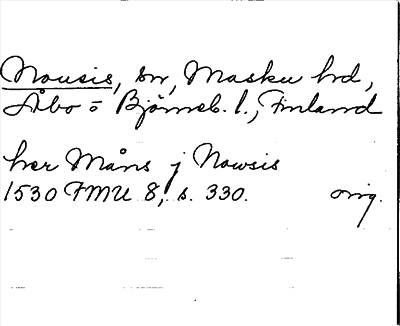 Nousis, sn, Masku hrd,
Åbo o Björneb. l., Finland
her Måns j Nowsis
1530 FMU 8, s. 330. orig.